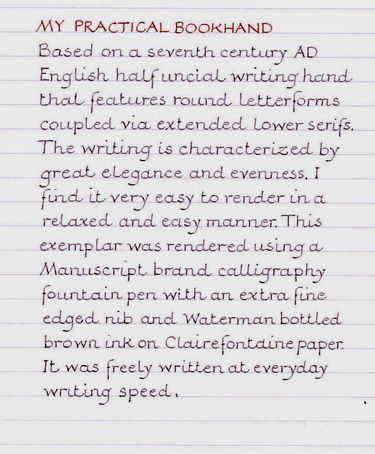 MY PRACTICAL BOOKHAND
Based on a seventh century AD
English half uncial writing hand
that features round letterforms
coupled via extended lower serifs.
The writing is characterized by
great elegance and evenness. I
find it very easy to render in a
relaxed and easy manner. This
exemplar was rendered using a
Manuscript brand calligraphy
fountain pen with an extra fine
edged nib and Waterman bottled
brown ink on Clairefontaine paper.
It was freely written at everyday
writing speed.